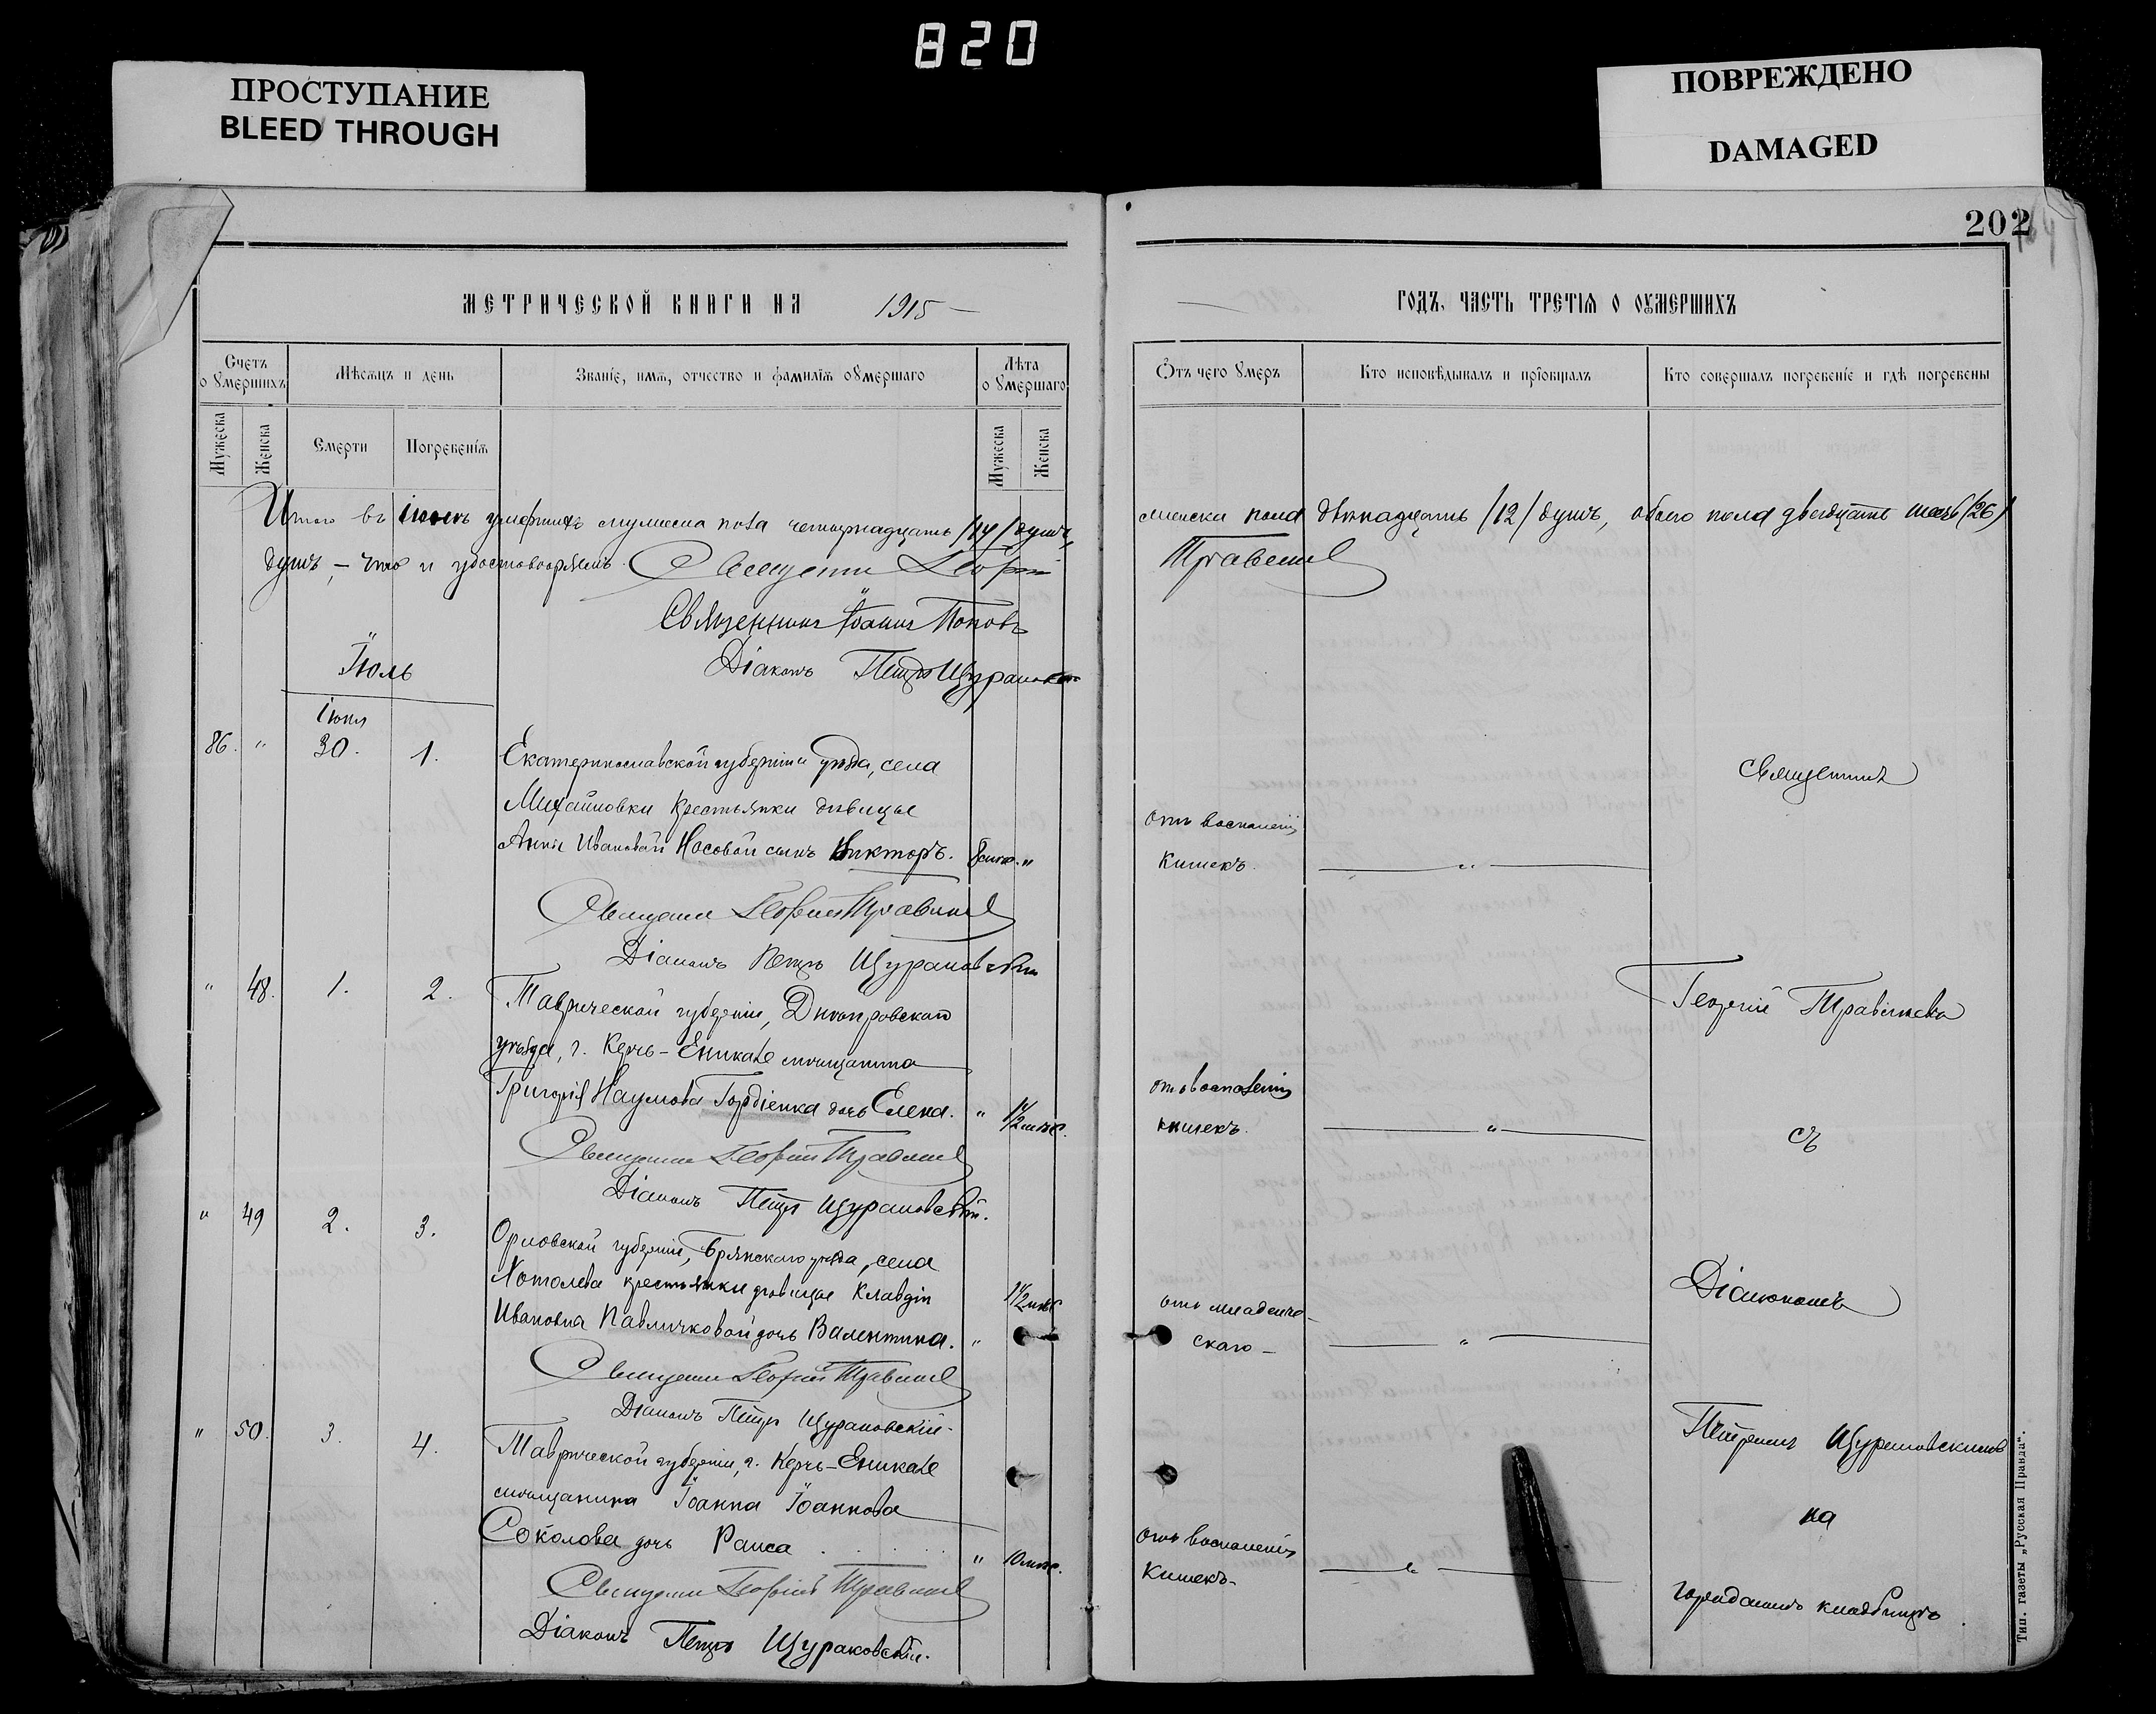 820
ПРОСТУПАНИЕ
BLEED THROUGH
ПОВРЕЖДЕНО
DAMAGED
202
МЕТРИЧЕСКОЙ КНИГИ НА 1915
ГОДЪ, ЧАСТЬ ТРЕТІЯ О ОУМЕРШИХЪ
Счетъ о Умершихъ
Мѣсяцъ и день
Званіе, имя, отчество и фамилія оумершаго
Лѣта о Умершаго
Отъ чего Умеръ
Кто исповѣдывалъ и пріобщалъ
Кто совершалъ погребеніе и гдѣ погребены
Мужеска
Женска
Смерти
Погребенія
Мужеска
Женска
Итого въ іюнѣ умершихъ мужеска пола четырнадцать /14/ душъ,
женска пола двѣнадцать /12/ душъ, обоего пола двадцать шесть (26)
душъ, – что и удостовѣряемъ. Священникъ Георгій
Священникъ Іоаннъ Поповъ
Іюль
Діаконъ Петръ Щурановскій
Іюня
86. " 30. 1. Екатеринославской губерніи уѣзда, села
Михайловки крестьянки дѣвицы
Анны Ивановой Носовой сынъ Викторъ. "
отъ воспаленія
кишекъ. "
Священникъ
Священникъ Георгій
Діаконъ Петръ Щурановскій
" 48. 1. 2. Таврической губерніи, Днѣпровскаго
уѣзда, г. Керчь-Еникале мѣщанина
Григорія Наумова Гордіенка дочь Елена. " 1 1/2 мѣс.
отъ воспаленія
кишекъ. "
Георгій
съ
Священникъ Георгій
Діаконъ Петръ Щурановскій.
" 49 2. 3. Орловской губерніи, Брянскаго уѣзда, села
крестьянки дѣвицы Клавдіи
Ивановна Павличковой дочь Валентина. " 1 1/2 мѣс
отъ младенче-
скаго – "
Діакономъ
Священникъ Георгій
Діаконъ Петръ Щурановскій.
" 50. 3. 4. Таврической губерніи, г. Керчь-Еникале
мѣщанина Іоанна Іоаннова
Соколова дочь Раиса " 10 мѣс.
отъ воспаленія
кишекъ. "
Петромъ Щурановскимъ
на
городскомъ кладбищѣ.
Священникъ Георгій
Діаконъ Петръ Щурановскій.
Тип. газеты „Русская Правда".